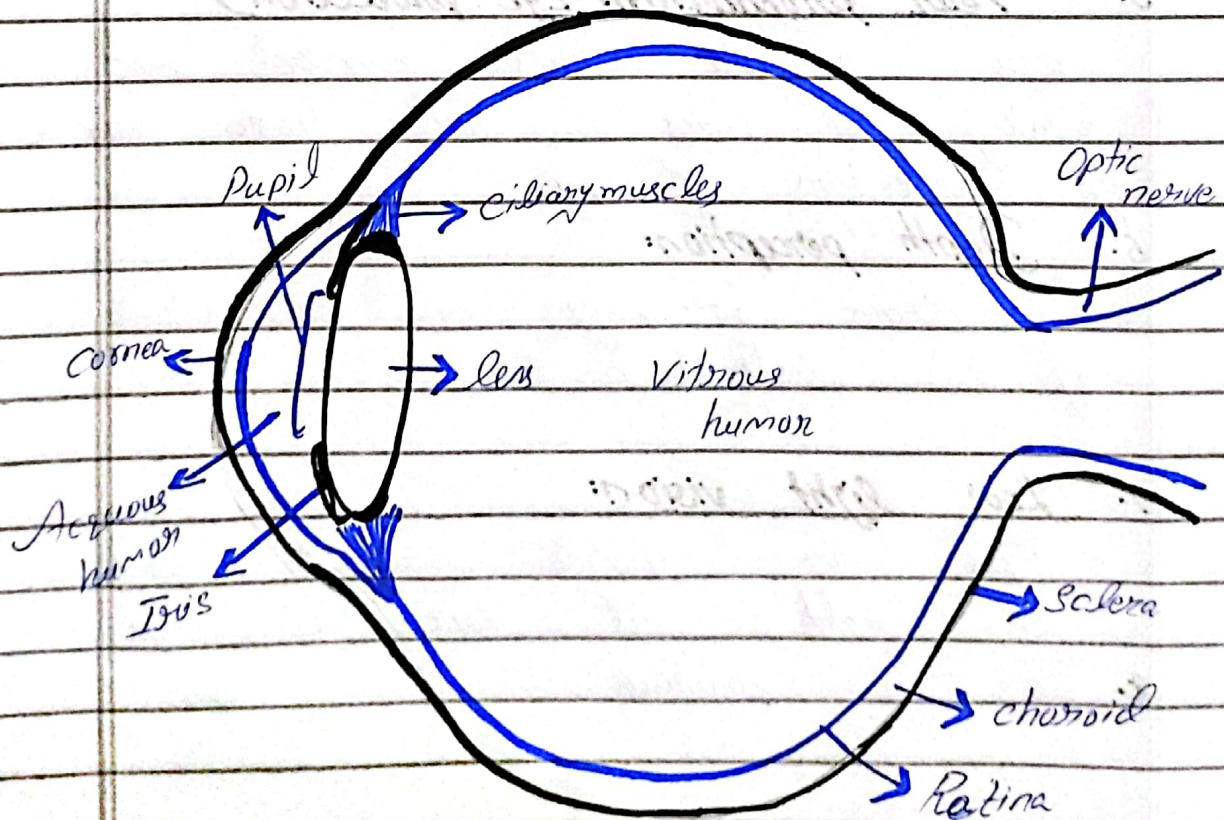 Pupil
ciliary muscles
Optic
nerve
Cornea
lens
Vitrous
humor
Acquous
humor
Iris
Sclera
choroid
Ratina